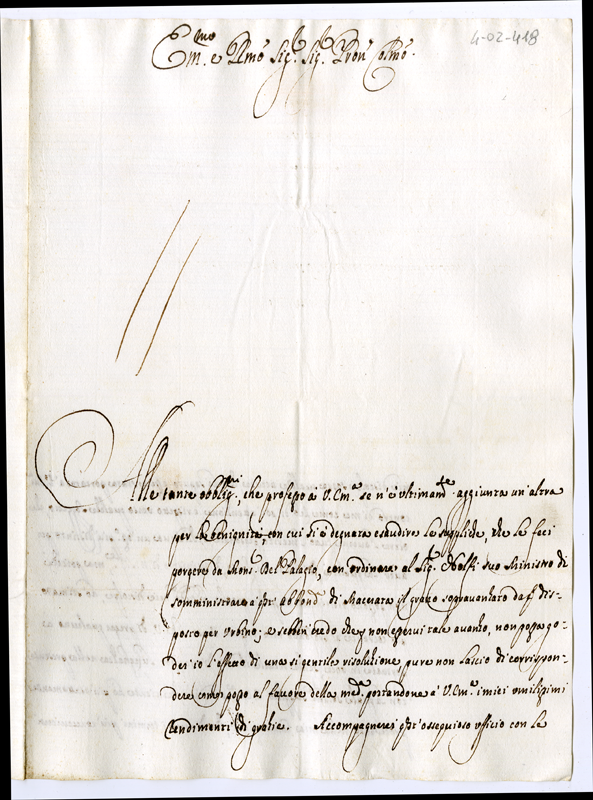 4-02-418
Em.mo e Rmo Sig.r Sig.r Pron Colmo
Alle tante obblig.ni, che professo à V. Em.a se n'è ultimam.te aggiunta un'altra
per la benignità, con cui si è degnata esaudire le suppliche, che le feci
porgere da Mons.r Del Palagio, con ordinare al Sig.r Nolfi suo Ministro di
somministrare a q.sto Abbond.a di Macerata il grano sopravanzato da q.sto dis-
posto per Urbino; e sebben credo che non esservi tale avanzo, non possa go-
der io l'effetto di una si gentile risolutione, pure non lascio di corrispon-
dere come posso al favore della med.a portandone à V. Em.a i miei umilissimi
rendimenti di gratie. Accompagnerei q.sto ossequioso ufficio con le